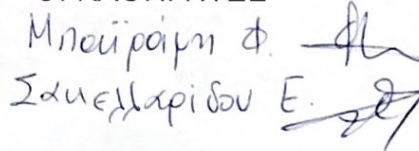 Μπαϊράμη Φ.
Σακελλαρίδου Ε.